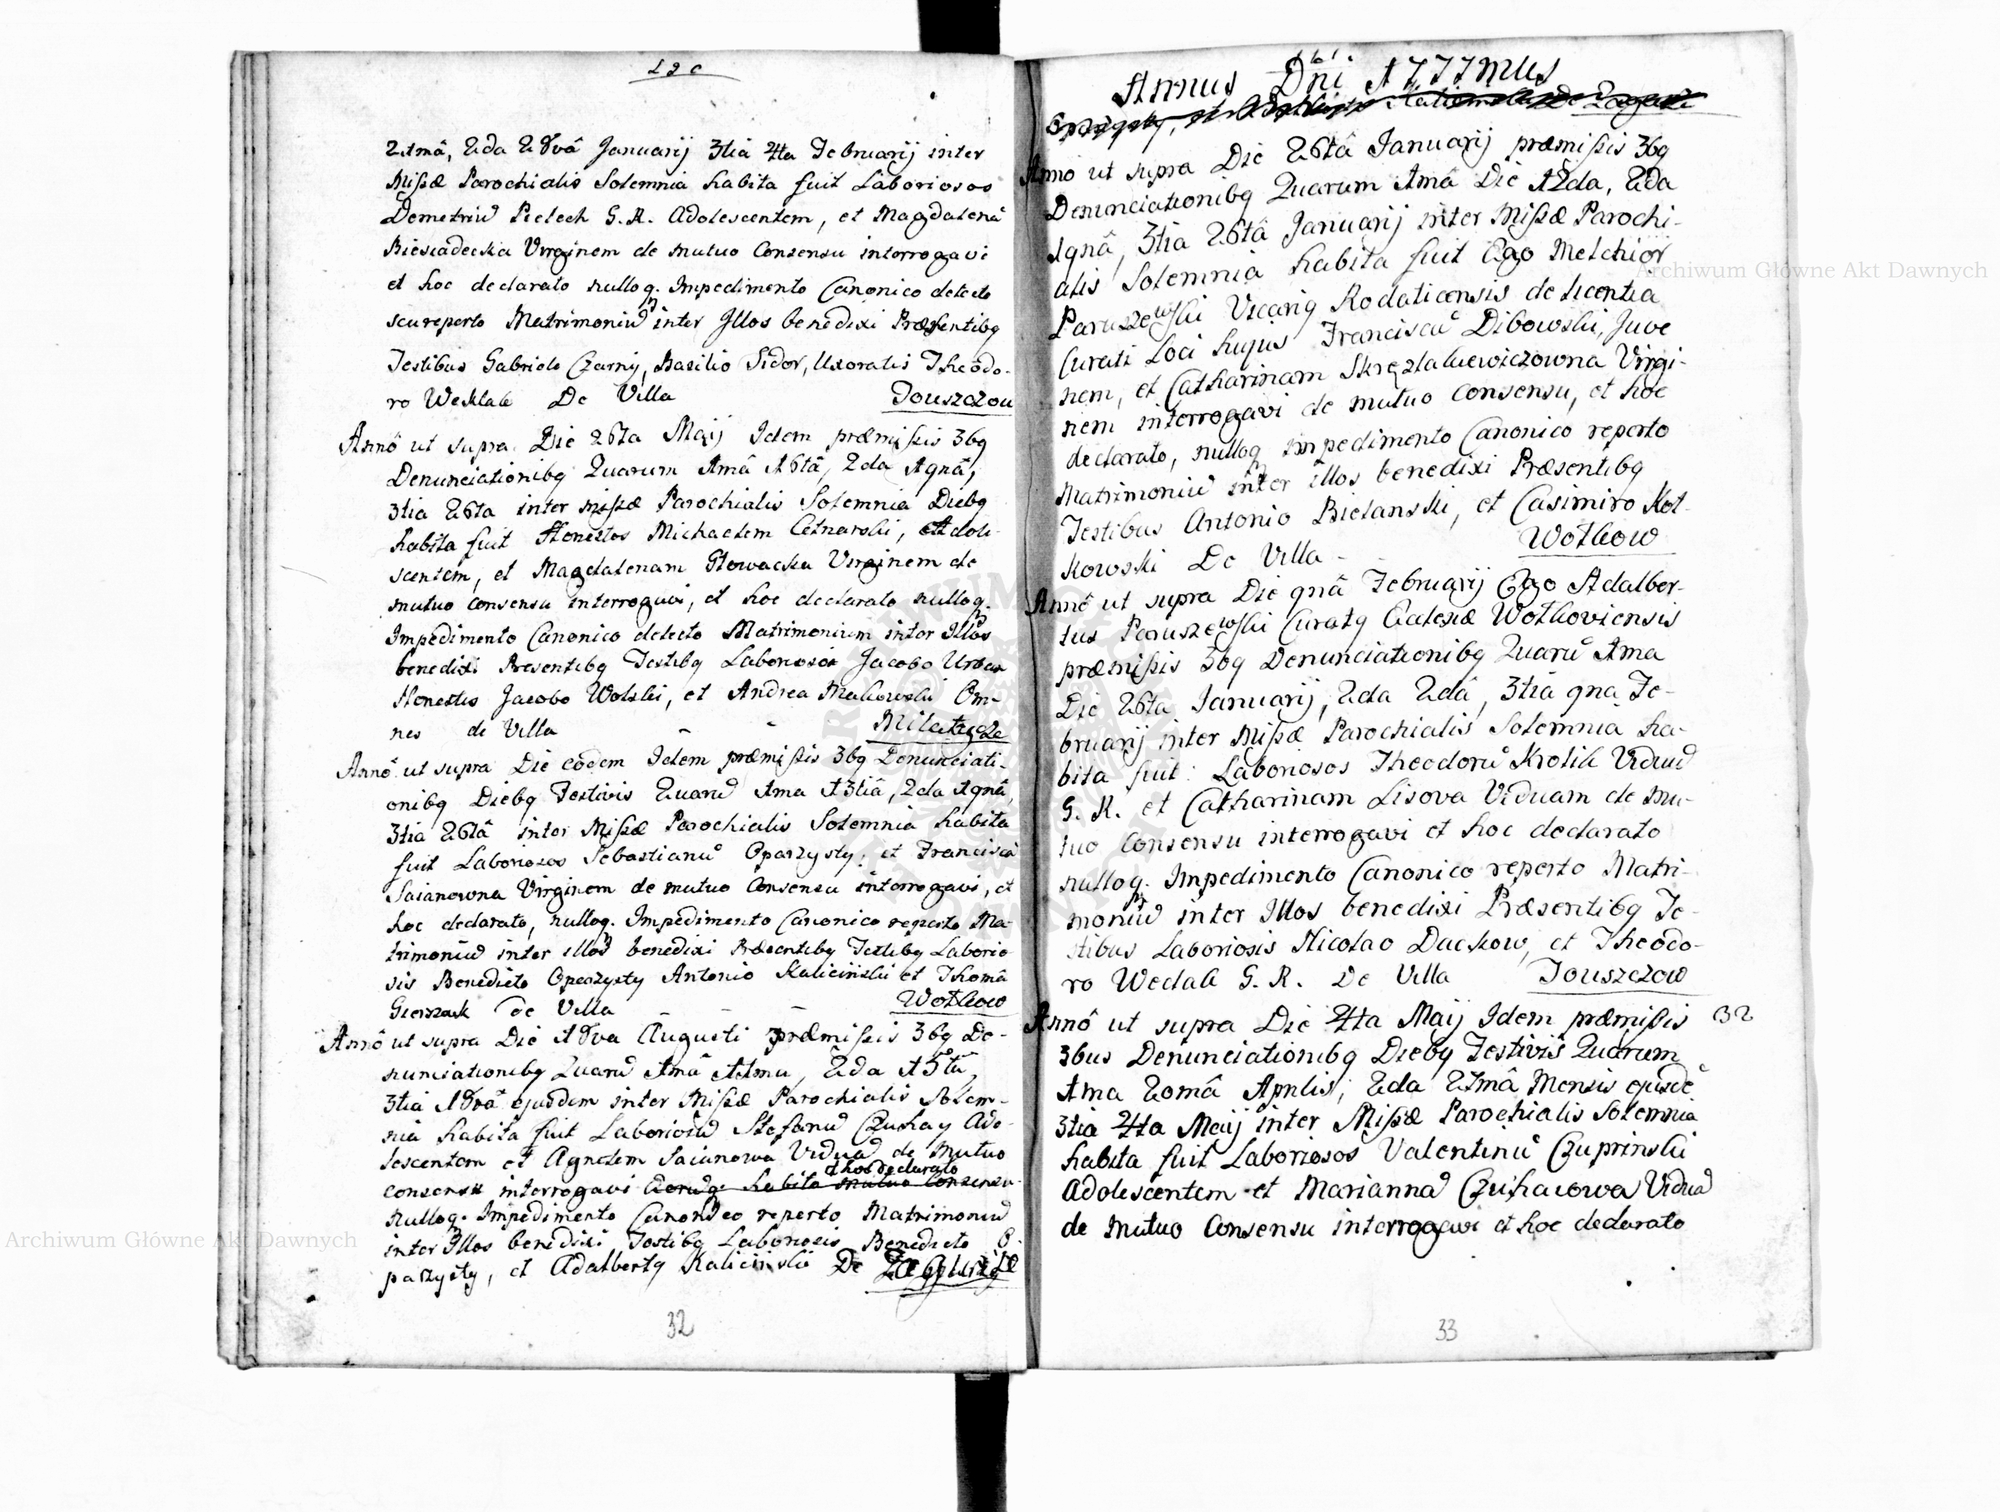 21mâ, 2da 28vâ Januarij 3tia 4ta Februarij inter
Missæ Parochialis Solemnia habita fuit Laboriosos
Demetriũ Pielech G. R. Adolescentem, et Magdalenã
Biesiadecka Virginem de mutuo Consensu interrogavi
et hoc declarato nulloq. Impedimento Canonico detecto
seu reperto Matrimoniũ inter Illos benedixi Præsentibq
Testibus Gabriele Czarny, Basilio Sidor, Uxoratis Theodo-
ro Weklak De Villa Touszczow
Annô ut supra Die 26ta Maij Idem præmissis 3bq
Denunciationibq Quarum 1mâ 16tâ, 2da 19nâ,
3tia 26ta inter missæ Parochialis Solemnia Diebq
habita fuit Honestos Michaelem Cetnarski, Adole-
scentem, et Magdalenam Głowacka Virginem de
mutuo consensu interrogavi, et hoc declarato nulloq.
Impedimento Canonico detecto Matrimonium inter Illos
benedixi Presentibq Testibq Laborioso Jacobo Urban
Honestis Jacobo Wolski, et Andrea Makowski Om-
nes de Villa - - Milatycze
Annô ut supra Die eodem Idem præmissis 3bq Denunciati-
onibq Diebq Festivis Quarũ 1ma 13tiâ, 2da 19nâ,
3tia 26tâ inter Missæ Parochialis Solemnia habita
fuit Laboriosos Sebastianũ Oparzysty, et Franciscã
Saianowna Virginem de mutuo Consensu interrogavi, et
hoc declarato, nulloq. Impedimento Canonico reperto Ma-
trimoniũ inter illos benedixi Præsentibq Testibq Laborio-
sis Benedicto Oparzysty Antonio Kaliciński et Thomâ
Gierszak De Villa - - - Wołkow
Annô ut supra Die 18va Augusti præmissis 3bq De-
nunciationibq Quarũ 1mâ 11ma, 2da 15tâ,
3tia 18vâ ejusdem inter Missæ Parochialis Solem-
nia habita fuit Laboriosũ Stefanũ Czuhay Ado-
lescentem et Agnetem Saianowa Viduã de Mutuo
et hoc declarato
consensu interrogavi habito mutuo Consensu
nulloq. Impedimento Canonico reperto Matrimoniũ
inter Illos benedixi Testibq Laboriosis Benedicto O-
parzysty, et Adalbertq Kaliciński De Zagurze
32
Annus Dni 1777mus
Annô ut supra Die 26tâ Januarij præmissis 3bq
Denunciationibq Quarum 1mâ Die 12da, 2da
19nâ, 3tia 26tâ Januarij inter Missæ Parochi-
alis Solemnia habita fuit Ego Melchior
Paruszewski Vicariq Rodaticensis de licentia
Curati Loci hujus Franciscũ Dibowski, Juve
nem, et Catharinam Skrzętalwewiczowna Virgi-
nem interrogavi de mutuo consensu, et hoc
declarato, nulloq impedimento Canonico reperto
Matrimoniũ inter illos benedixi Præsentibq
Testibus Antonio Bielanski, et Casimiro Kot-
kowski De Villa - - Wołkow
Annô ut supra Die 9nâ Februarij Ego Adalber-
tus Paruszewski Curatq Ecclesiæ Wołkoviensis
præmissis 3bq Denunciationibq Quarũ 1ma
Die 26ta Januarij, 2da 2dâ, 3tia 9na Fe-
bruarij inter Missæ Parochialis Solemnia ha-
bita fuit: Laboriosos Theodorũ Krolik Viduũ
G. R. et Catharinam Lisova Viduam de mu-
tuo Consensu interrogavi et hoc declarato
nulloq. Impedimento Canonico reperto Matri-
moniũ inter Illos benedixi Præsentibq Te-
stibus Laboriosis Nicolao Duckow, et Theodo-
ro Weclak G. R. De Villa Touszczow
Annô ut supra Die 4ta Maij Idem præmissis 32
3bus Denunciationibq Diebq Festivis Quarum
1ma 20mâ Aprilis, 2da 27mâ Mensis ejusdẽ
3tia 4ta Maij inter Missæ Parochialis Solemnia
habita fuit Laboriosos Valentinũ Czuprinski
Adolescentem et Mariannã Czuhaiowa Viduã
de mutuo Consensu interrogavi et hoc declarato
33
Archiwum Główne Akt Dawnych
Archiwum Główne Akt Dawnych